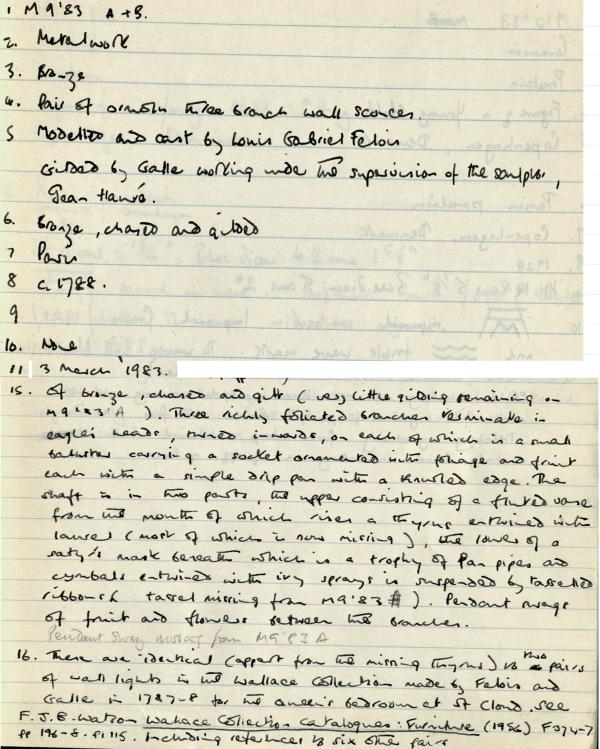 1 M9'83 A+B.
2. Metalwork
3. Bronze
4. Pair of ormolu three branch wall sconces.
5 Modelled and cast by Louis Gabriel Feloix
Gilded by Galle working under the supervision of the sculptor,
Jean Hauré.
6. Bronze, chased and gilded
7 Paris
8 c. 1788.
9
10. None
11 3 March 1983.
15. Of bronze, chased and gilt (very little gilding remaining on
M9'83'A). Three richly foliated branches terminate in
eagle's heads, turned inwards, on each of which is a small
baluster carrying a socket ornamented with foliage and fruit
each with a simple drip pan with a knurled edge. The
shaft is in two parts, the upper consisting of a fluted vase
from the mouth of which rises a thyrus entwined with
laurel (most of which is now missing), the lower of a
satyr's mask beneath which is a trophy of Pan pipes and
cymbals entwined with ivy sprays is suspended by tasselled
ribbons tassel missing from M9'83). Pendant swags
of fruit and flowers between the branches.
Pendant swag missing from M9'83 A
16. These are identical (appart from the missing thyrus) to two pairs
of wall lights in the Wallace Collection made by Feloix and
Galle in 1787-8 for the Queen's bedroom at St Cloud. See
F.J.B. Watson Wallace Collection Catalogues: Furniture (1956) F374-7
pp 196-8. pl 115. Including references to six other pairs